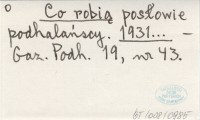 Co robią posłowie
podhalańscy. 1931... –
Gaz. Podh. 19, nr 43.